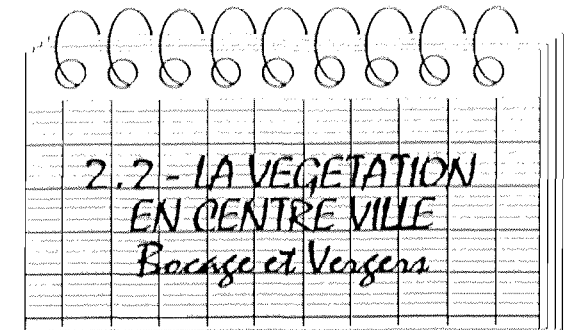 2.2 - LA VEGETATION
EN CENTRE VILLE
Bocage et Vergers